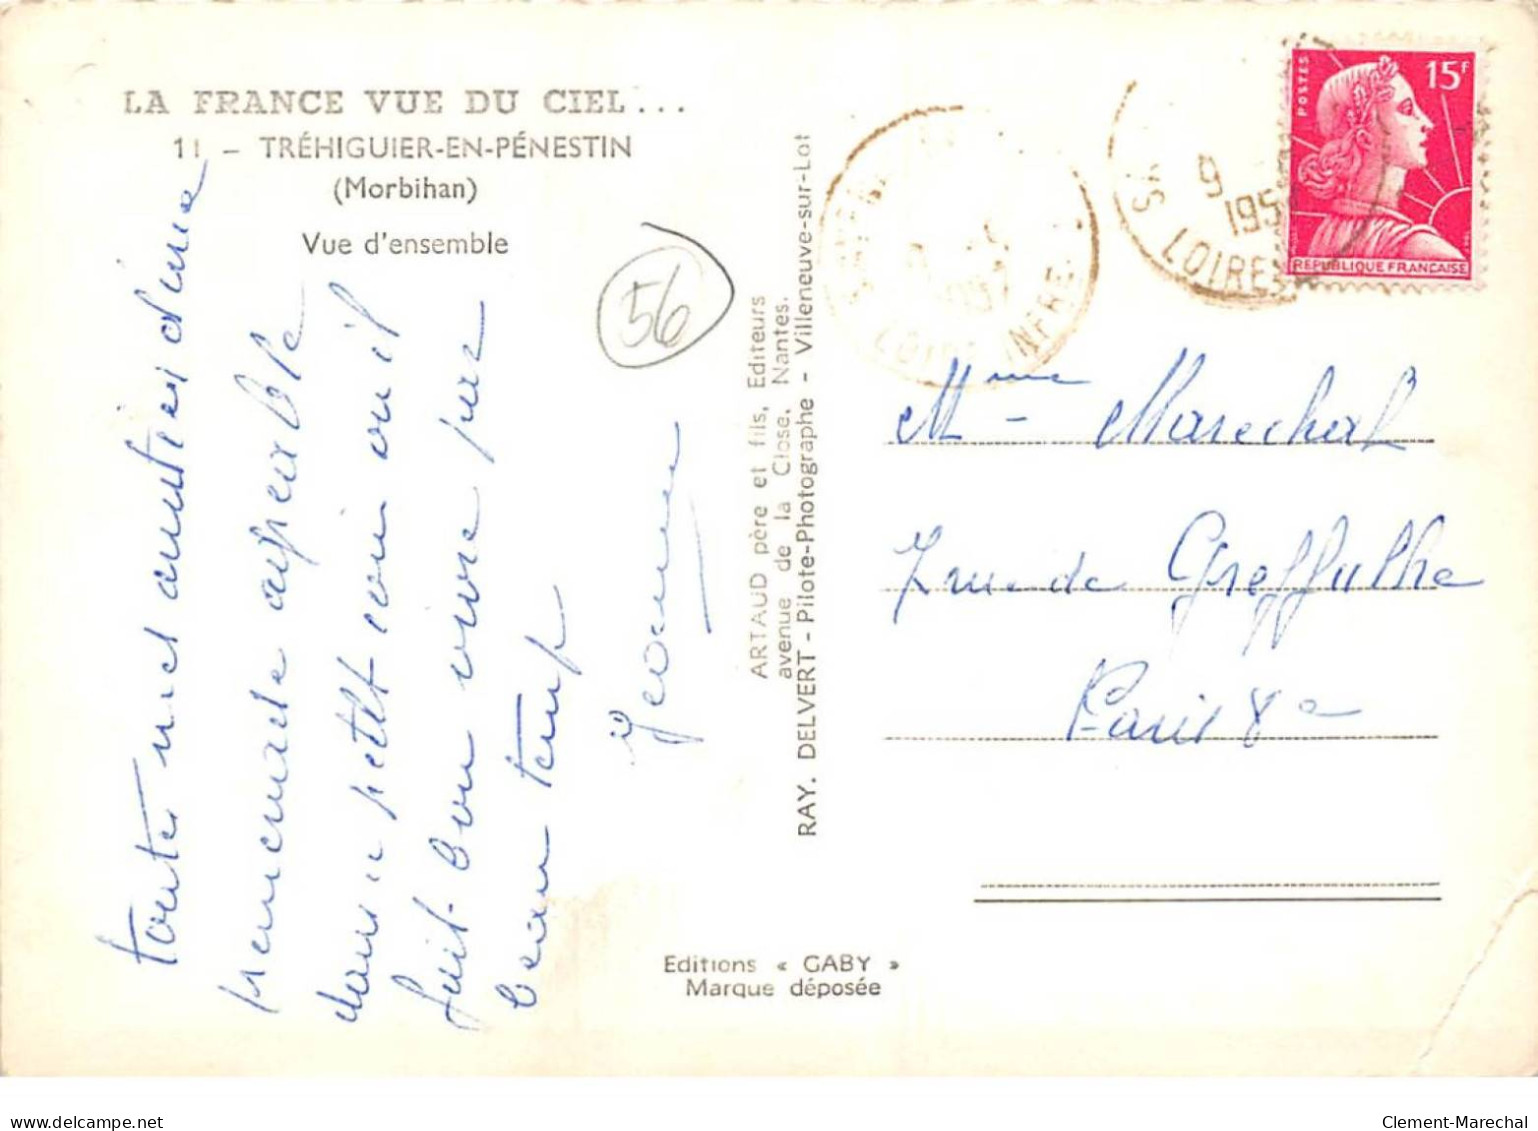 LA FRANCE VUE DU CIEL...
11 - TRÉHIGUIER-EN-PÉNESTIN
(Morbihan)
Vue d'ensemble
56
toutes mes amities d'une
promenade agreable
dans ce petit coin ou il
fait bon vivre par
beau temps
Jeanne
ARTAUD père et fils, Editeurs
avenue de la Close. Nantes.
RAY. DELVERT - Pilote-Photographe - Villeneuve-sur-Lot
Editions « GABY »
Marque déposée
LOIRE INFRE
9
195
LOIRE
POSTES
15F
REPUBLIQUE FRANCAISE
Mme Marechal
7 rue de Greffulhe
Paris 8e
Clement-Marechal